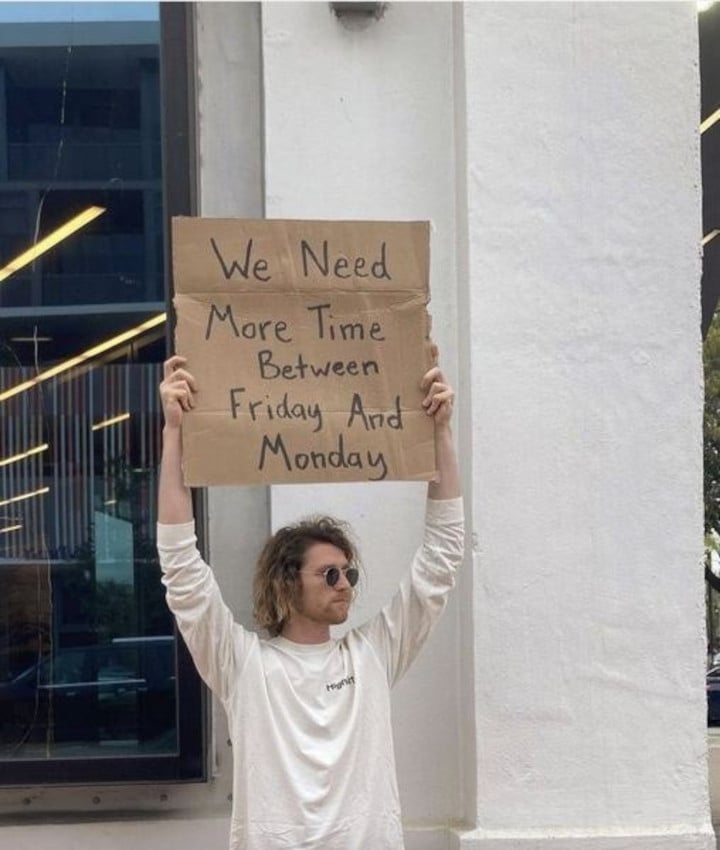 We Need
More Time
Between
Friday And
Monday